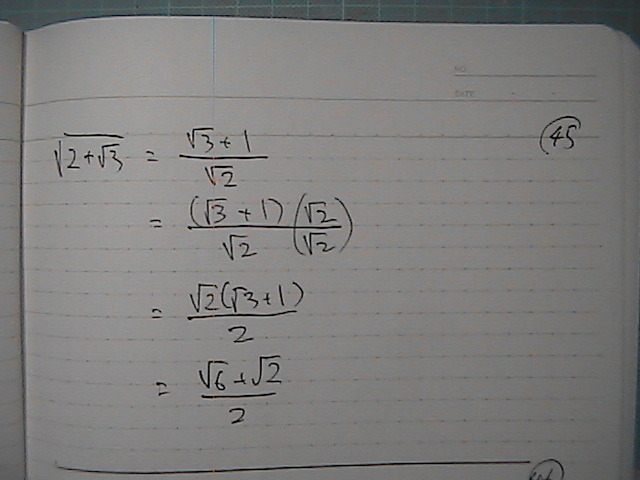 NO.
DATE
√(2+√3) = (√3+1)/√2
45
= (√3+1)/√2 (√2/√2)
= √2(√3+1)/2
= (√6+√2)/2